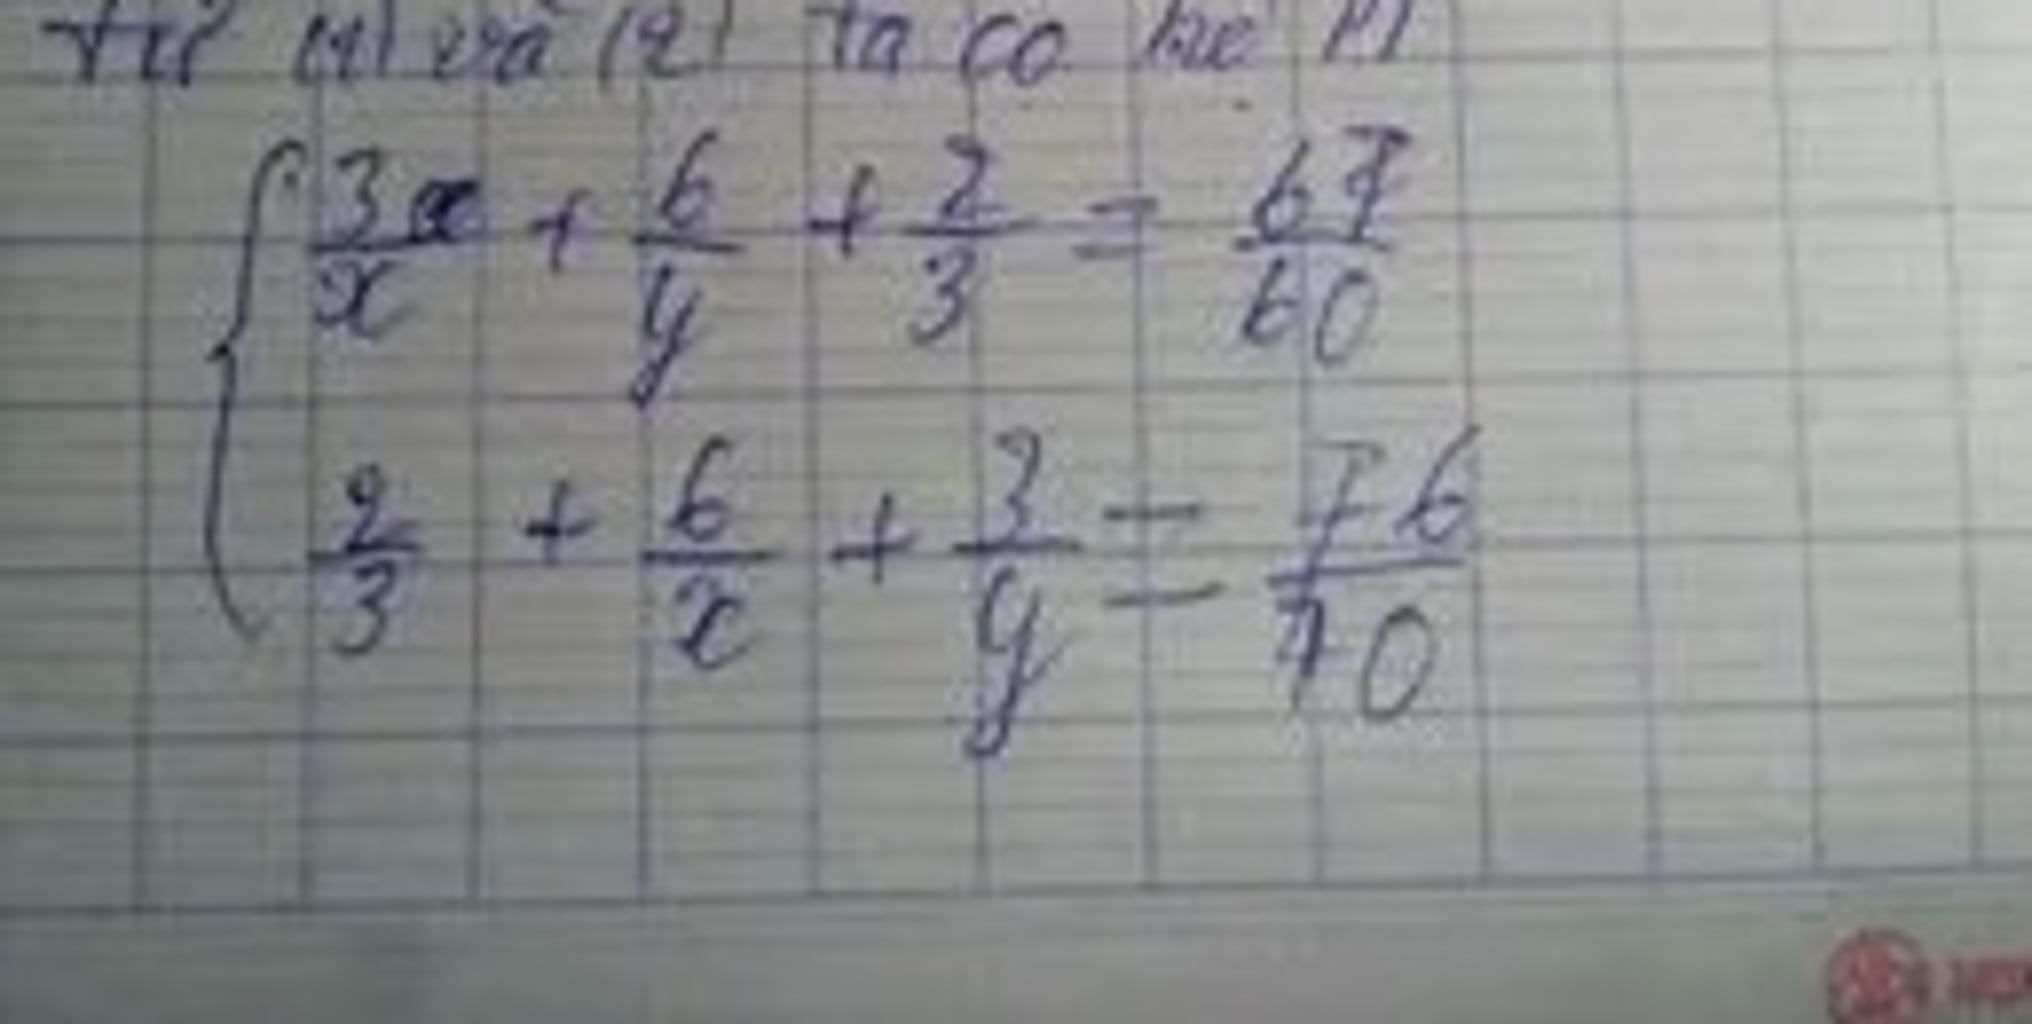 từ (1) và (2) ta có hệ PT
{ 3/x + 6/y + 2/3 = 67/60
2/3 + 6/x + 3/y = 76/70